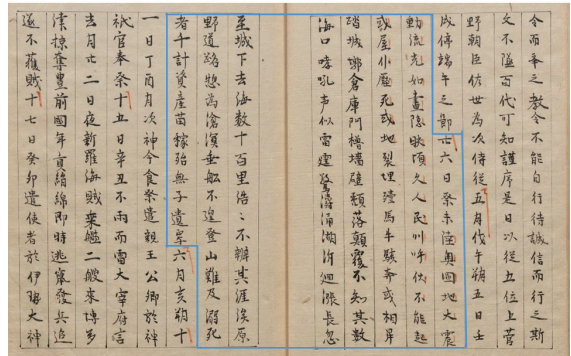 令而奉之教令不能自行待誠信而行之斯
文不墜百代可知護序是日以從五位上菅
野朝臣佐世為次侍從五月戊午朔五日壬
戌停端午之節廿六日癸未陸奧國地大震
動流光如晝隱映頃之人民叫呼伏不能起
或屋仆壓死或地裂埋殪馬牛駭奔或相昇
踏城郭倉庫門櫓墻壁頽落顛覆不知其數
海口哮吼声似雷霆驚濤涌潮泝洄漲長忽
至城下去海數十百里浩々不辨其涯涘原
野道路惣為滄溟乗舩不遑登山難及溺死
者千計資産苗稼殆無孑遺焉六月亥朔十
一日丁酉月次神今食祭遣親王公卿於神
祇官奉祭十五日辛丑不雨而雷大宰府言
去月廿二日夜新羅海賊乗艦二艘来博多
津掠奪豊前國年貢絹綿即時逃竄發兵追
遂不獲賊十七日癸卯遣使者於伊勢大神